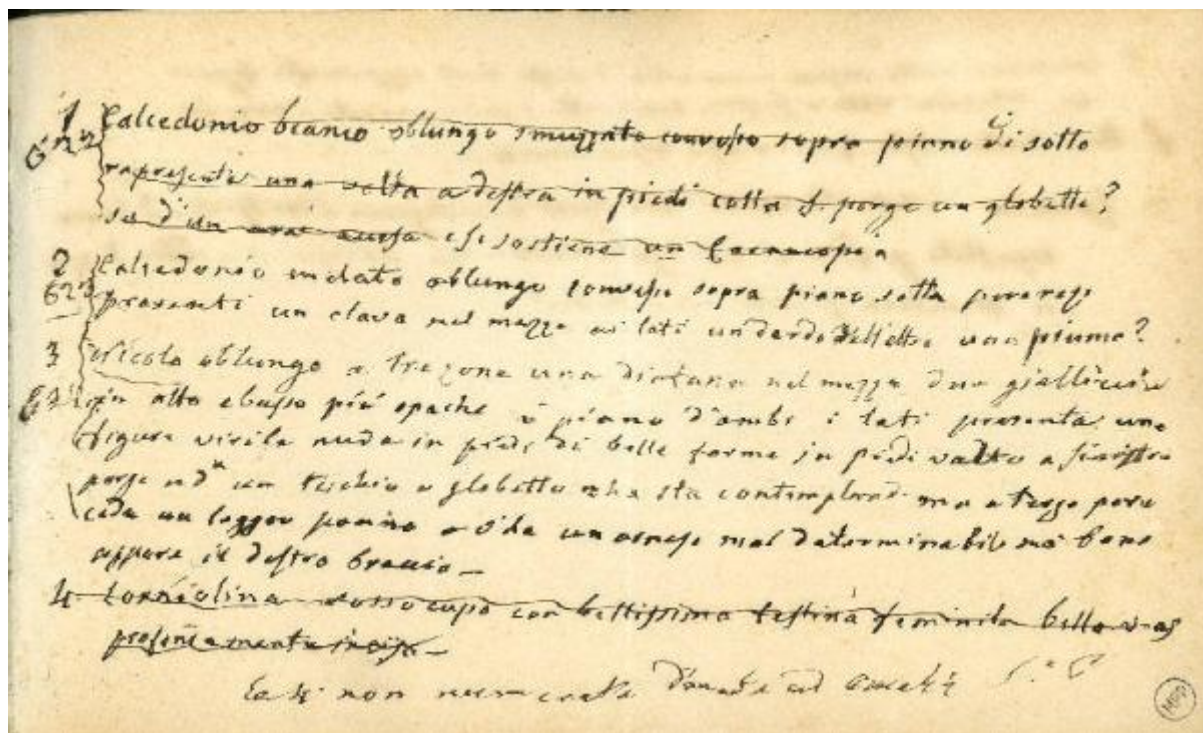 1 Calcedonio bianco oblungo smuzzato convesso sopra piano di sotto
622 rapresenta una volta a destra in piedi colla S. porge un globetto?
su d'un ara accesa e si sostiene un Cornucopia
2 Calcedonio oblungo convesso sopra piano sotto
presenti un clava nel mezzo ai lati un dardo dell'altro una piuma?
3 Nicolo oblungo a tre zone una diafana nel mezzo due
in alto e basso più opache è piano d'ambi i lati presenta una
figura virile nuda in piedi di belle forme in piedi volto a sinistra
porge un teschio o globetto che sta contempland. ma a tergo pare
cada un leggier panno a un arnese mal determinabile ma bene
appare il destro braccio_
4 Corniolina rosso cupo con bellissima testina feminile bella
profondamente incisa_
La 4 non numerata
MBP